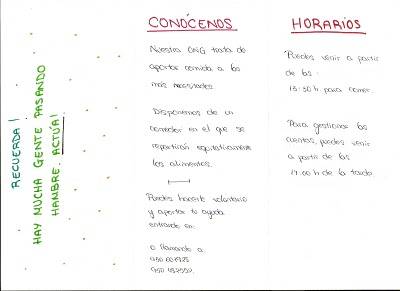 RECUERDA!
HAY MUCHA GENTE PASANDO
HAMBRE. ACTÚA!
CONÓCENOS
Nuestra ONG trata de
aportar comida a los
más necesitados.
Disponemos de un
comedor en el que se
repartirán equitativamente
los alimentos.
Puedes hacerte voluntario
y aportar tu ayuda
entrando en:
o llamando a:
950
950
HORARIOS
Puedes venir a partir
de las:
13:30 h. para comer.
Para gestionar las
cuentas, puedes venir
a partir de las
17:00 h de la tarde